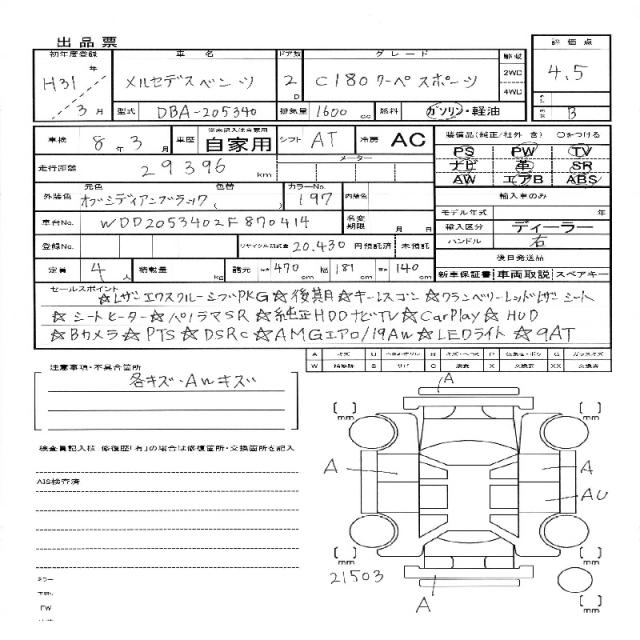 出品票
初年度登録 車名 ドア数 グレード 駆動 評価点
H31年 3月 メルセデスベンツ 2D C180クーペスポーツ 2WD 4WD 4.5
型式 DBA-205340 排気量 1600cc 燃料 ガソリン・軽油 B
車検 8年3月 車歴 自家用 シフト AT 冷房 AC 装備品(純正/社外 含) ○をつける
走行距離 29396km メーター PS PW TV
ナビ 革 SR
AW エアB ABS
外装色 元色 オブシディアンブラック 色替 ( ) カラーNo. 197 内装色 輸入車のみ
車台No. WDD2053402F870414 名変期限 月 日 モデル年式 年
輸入区分 ディーラー
登録No. リサイクル預託金 20.430円預託済 未預託 ハンドル 右
後日発送品
定員 4人 積載量 kg 諸元 470cm 幅 181cm 140cm 新車保証書 車両取説 スペアキー
セールスポイント
☆レザーエクスクルーシブPKG☆後期☆キーレスゴー☆クランベリーレッドレザーシート
☆シートヒーター☆パノラマSR☆純正HDDナビTV☆CarPlay☆HUD
☆Bカメラ☆PTS☆DSRC☆AMGエアロ/19AW☆LEDライト☆9AT
注意事項・不具合箇所
各キズ・AWキズ
検査員記入欄 修復歴「有」の場合は修復箇所・交換箇所を記入
AIS検査済
A
mm mm
A A
AU
mm mm
21503
A
mm